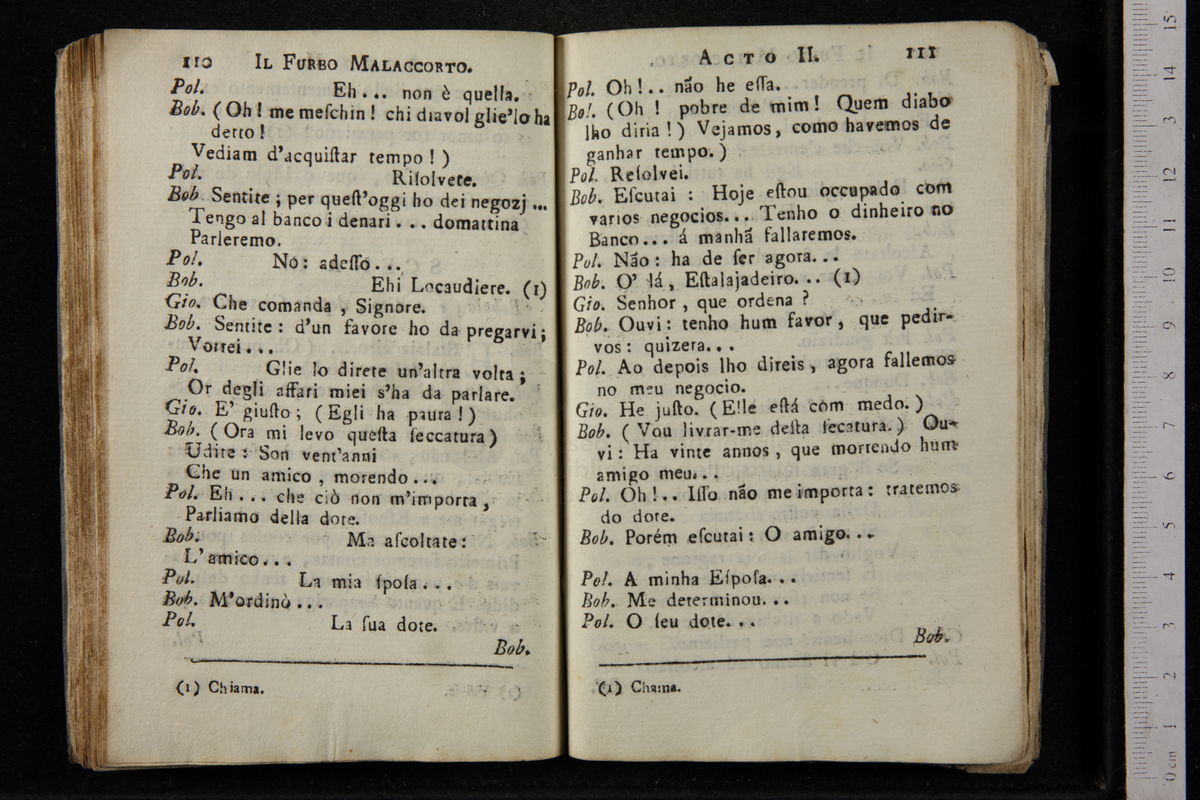 110 IL FURBO MALACCORTO.
Pol. Eh... non è quella.
Bob. (Oh! me meſchin! chi diavol glie'lo ha
detto!
Vediam d'acquiſtar tempo!)
Pol. Riſolvete.
Bob. Sentite; per queſt'oggi ho dei negozj...
Tengo al banco i denari... domattina
Parleremo.
Pol. No: adeſſo...
Bob. Ehi Locaudiere. (1)
Gio. Che comanda, Signore.
Bob. Sentite: d'un favore ho da pregarvi;
Vorrei...
Pol. Glie lo direte un'altra volta;
Or degli affari miei s'ha da parlare.
Gio. E' giuſto; (Egli ha paura!)
Bob. (Ora mi levo queſta ſeccatura)
Udite: Son vent'anni
Che un amico, morendo...
Pol. Eh... che ciò non m'importa,
Parliamo della dote.
Bob. Ma aſcoltate:
L'amico...
Pol. La mia ſpoſa...
Bob. M'ordinò...
Pol. La ſua dote.
Bob.
(1) Chiama.
ACTO II. 111
Pol. Oh!.. não he eſſa.
Bob. (Oh! pobre de mim! Quem diabo
lho diria!) Vejamos, como havemos de
ganhar tempo.)
Pol. Reſolvei.
Bob. Eſcutai: Hoje eſtou occupado com
varios negocios... Tenho o dinheiro no
Banco... á manhã fallaremos.
Pol. Não: ha de ſer agora...
Bob. O' lá, Eſtalajadeiro... (1)
Gio. Senhor, que ordena?
Bob. Ouvi: tenho hum favor, que pedir-
vos: quizera...
Pol. Ao depois lho direis, agora fallemos
no meu negocio.
Gio. He juſto. (Elle eſtá com medo.)
Bob. (Vou livrar-me deſta ſecatura.) Ou-
vi: Ha vinte annos, que morrendo hum
amigo meu...
Pol. Oh!.. Iſſo não me importa: tratemos
do dote.
Bob. Porém eſcutai: O amigo...
Pol. A minha Eſpoſa...
Bob. Me determinou...
Pol. O ſeu dote...
Bob.
(1) Chama.
15
14
13
12
11
10
9
8
7
6
5
4
3
2
1
0 cm